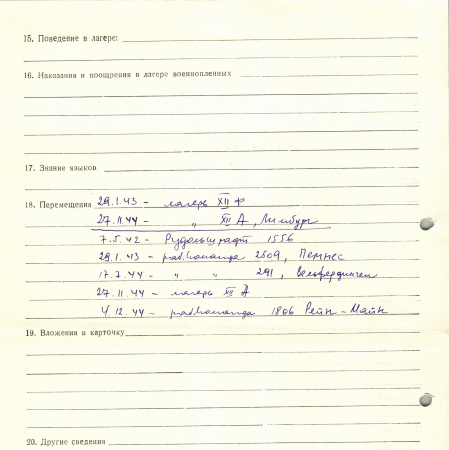 15. Поведение в лагере:
16. Наказания и поощрения в лагере военнопленных
17. Знание языков
18. Перемещения 29.1.43 – лагерь XII Ф
27.11.44 – " XII А, Лимбург
7.5.42 – 1556
29.1.43 – раб.команда 2609,
17.7.44 – " " 291,
27.11.44 – лагерь XII А
4.12.44 – раб.команда 1806 Рейн – Майн
19. Вложения в карточку
20. Другие сведения